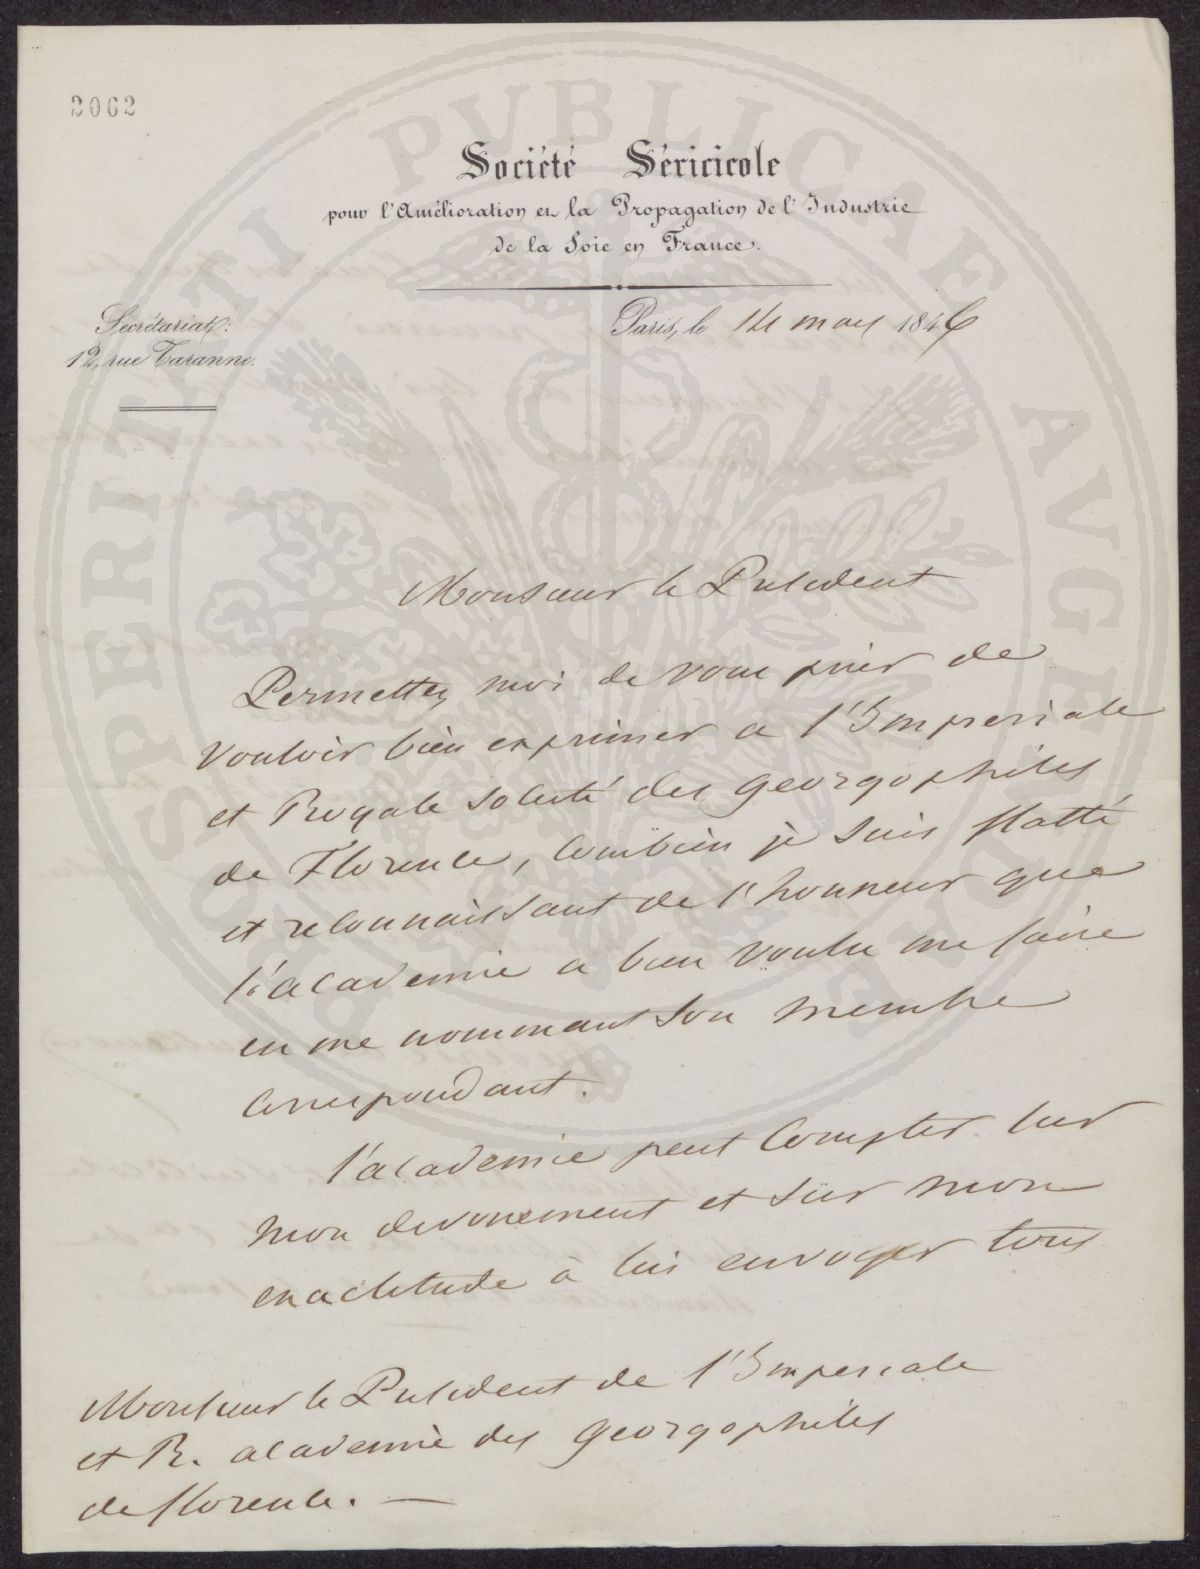 2062
Société Séricicole
pour l'Amélioration et la Propagation de l'Industrie
de la Soie en France.
Secrétariat:
12, rue Taranne.
Paris, le 14 mars 1846
PROSPERITATI PVBLICAE AVGENDAE
Monsieur le President
Permettez moi de vous prier de
vouloir bien exprimer a l'Imperiale
et Royale Societé des georgophiles
de Florence, combien je suis flatté
et reconnaissant de l'honneur que
l'academie a bien voulu me faire
en me nommant son membre
correspondant.
l'academie peut compter sur
mon devouement et sur mon
exactitude à lui envoyer tous
Monsieur le President de l'Imperiale
et R. academie des georgophiles
de florence. —